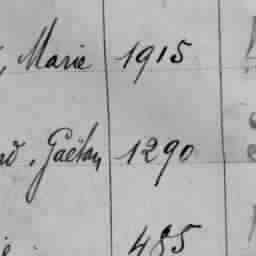 Marie 1915
Gaëtan 1290
485